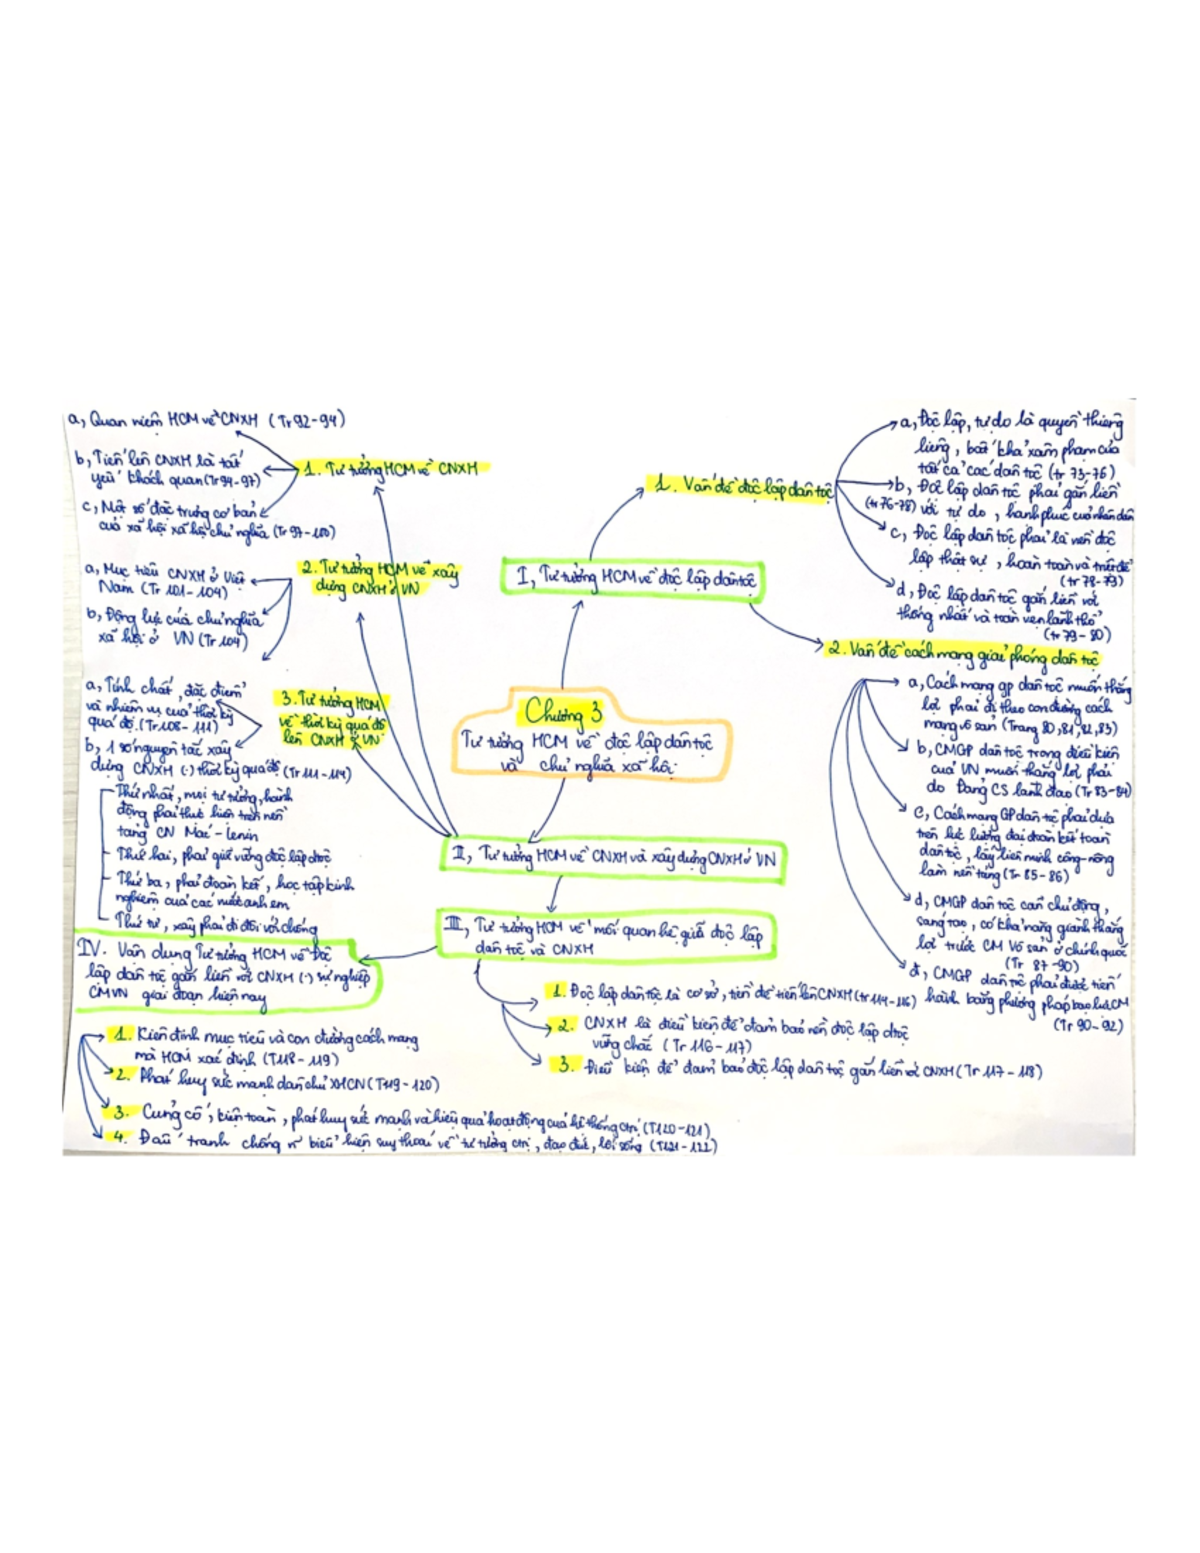 Chương 3
Tư tưởng HCM về độc lập dân tộc
và chủ nghĩa xã hội
I, Tư tưởng HCM về độc lập dân tộc
1. Vấn đề độc lập dân tộc
a, Độc lập, tự do là quyền thiêng
liêng, bất khả xâm phạm của
tất cả các dân tộc (tr 75-76)
b, Độc lập dân tộc phải gắn liền
(tr 76-78) với tự do, hạnh phúc của nhân dân
c, Độc lập dân tộc phải là nền độc
lập thật sự, hoàn toàn và triệt để
(tr 78-79)
d, Độc lập dân tộc gắn liền với
thống nhất và toàn vẹn lãnh thổ
(tr 79-80)
2. Vấn đề cách mạng giải phóng dân tộc
a, Cách mạng gp dân tộc muốn thắng
lợi phải đi theo con đường cách
mạng vô sản (Trang 80,81,82,83)
b, CMGP dân tộc trong điều kiện
của VN muốn thắng lợi phải
do Đảng CS lãnh đạo (Tr 83-84)
c, Cách mạng GP dân tộc phải dựa
trên lực lượng đại đoàn kết toàn
dân tộc, lấy liên minh công-nông
làm nền tảng (Tr 85-86)
d, CMGP dân tộc cần chủ động,
sáng tạo, có khả năng giành thắng
lợi trước CM vô sản ở chính quốc
(Tr 87-90)
đ, CMGP dân tộc phải được tiến
hành bằng phương pháp bạo lực CM
(Tr 90-92)
II, Tư tưởng HCM về CNXH và xây dựng CNXH ở VN
1. Tư tưởng HCM về CNXH
a, Quan niệm HCM về CNXH (Tr 92-94)
b, Tiến lên CNXH là tất
yếu khách quan (Tr 94-97)
c, Một số đặc trưng cơ bản
của xã hội xã hội chủ nghĩa (Tr 97-100)
2. Tư tưởng HCM về xây
dựng CNXH ở VN
a, Mục tiêu CNXH ở Việt
Nam (Tr 101-104)
b, Động lực của chủ nghĩa
xã hội ở VN (Tr 104)
3. Tư tưởng HCM
về thời kỳ quá độ
lên CNXH ở VN
a, Tính chất, đặc điểm
và nhiệm vụ của thời kỳ
quá độ (Tr 108-111)
b, 1 số nguyên tắc xây
dựng CNXH (·) thời kỳ quá độ (Tr 111-114)
Thứ nhất, mọi tư tưởng, hành
động phải thực hiện trên nền
tảng CN Mác-Lenin
Thứ hai, phải giữ vững độc lập dtộc
Thứ ba, phải đoàn kết, học tập kinh
nghiệm của các nước anh em
Thứ tư, xây phải đi đôi với chống
III, Tư tưởng HCM về mối quan hệ giữa độc lập
dân tộc và CNXH
1. Độc lập dân tộc là cơ sở, tiền đề tiến lên CNXH (tr 114-116)
2. CNXH là điều kiện để đảm bảo nền độc lập dtộc
vững chắc (Tr 116-117)
3. Điều kiện để đảm bảo độc lập dân tộc gắn liền với CNXH (Tr 117-118)
IV. Vận dụng Tư tưởng HCM về Độc
lập dân tộc gắn liền với CNXH (·) sự nghiệp
CMVN giai đoạn hiện nay
1. Kiên định mục tiêu và con đường cách mạng
mà HCM xác định (T118-119)
2. Phát huy sức mạnh dân chủ XHCN (T119-120)
3. Củng cố, kiện toàn, phát huy sức mạnh và hiệu quả hoạt động của hệ thống ctrị (T120-121)
4. Đấu tranh chống n~ biểu hiện suy thoái về tư tưởng ctrị, đạo đức, lối sống (T121-122)